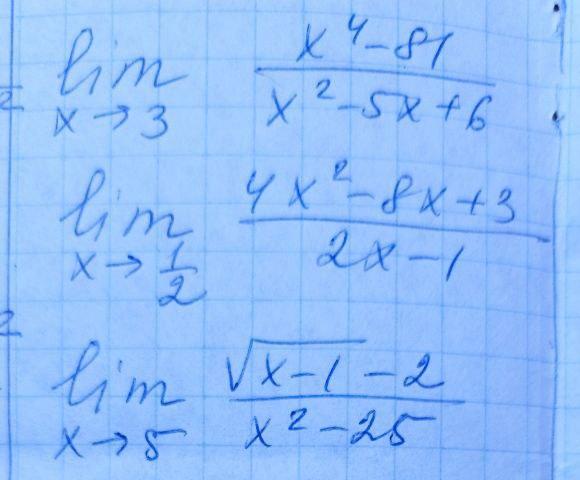 lim x→3 (x⁴-81)/(x²-5x+6)
lim x→1/2 (4x²-8x+3)/(2x-1)
lim x→5 (√(x-1)-2)/(x²-25)